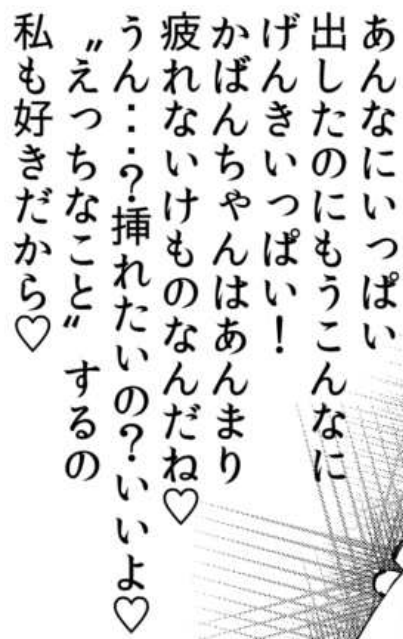 あんなにいっぱい
出したのにもうこんなに
げんきいっぱい!
かばんちゃんはあんまり
疲れないけものなんだね♡
うん・・・?挿れたいの?いいよ♡
〝えっちなこと〟するの
私も好きだから♡